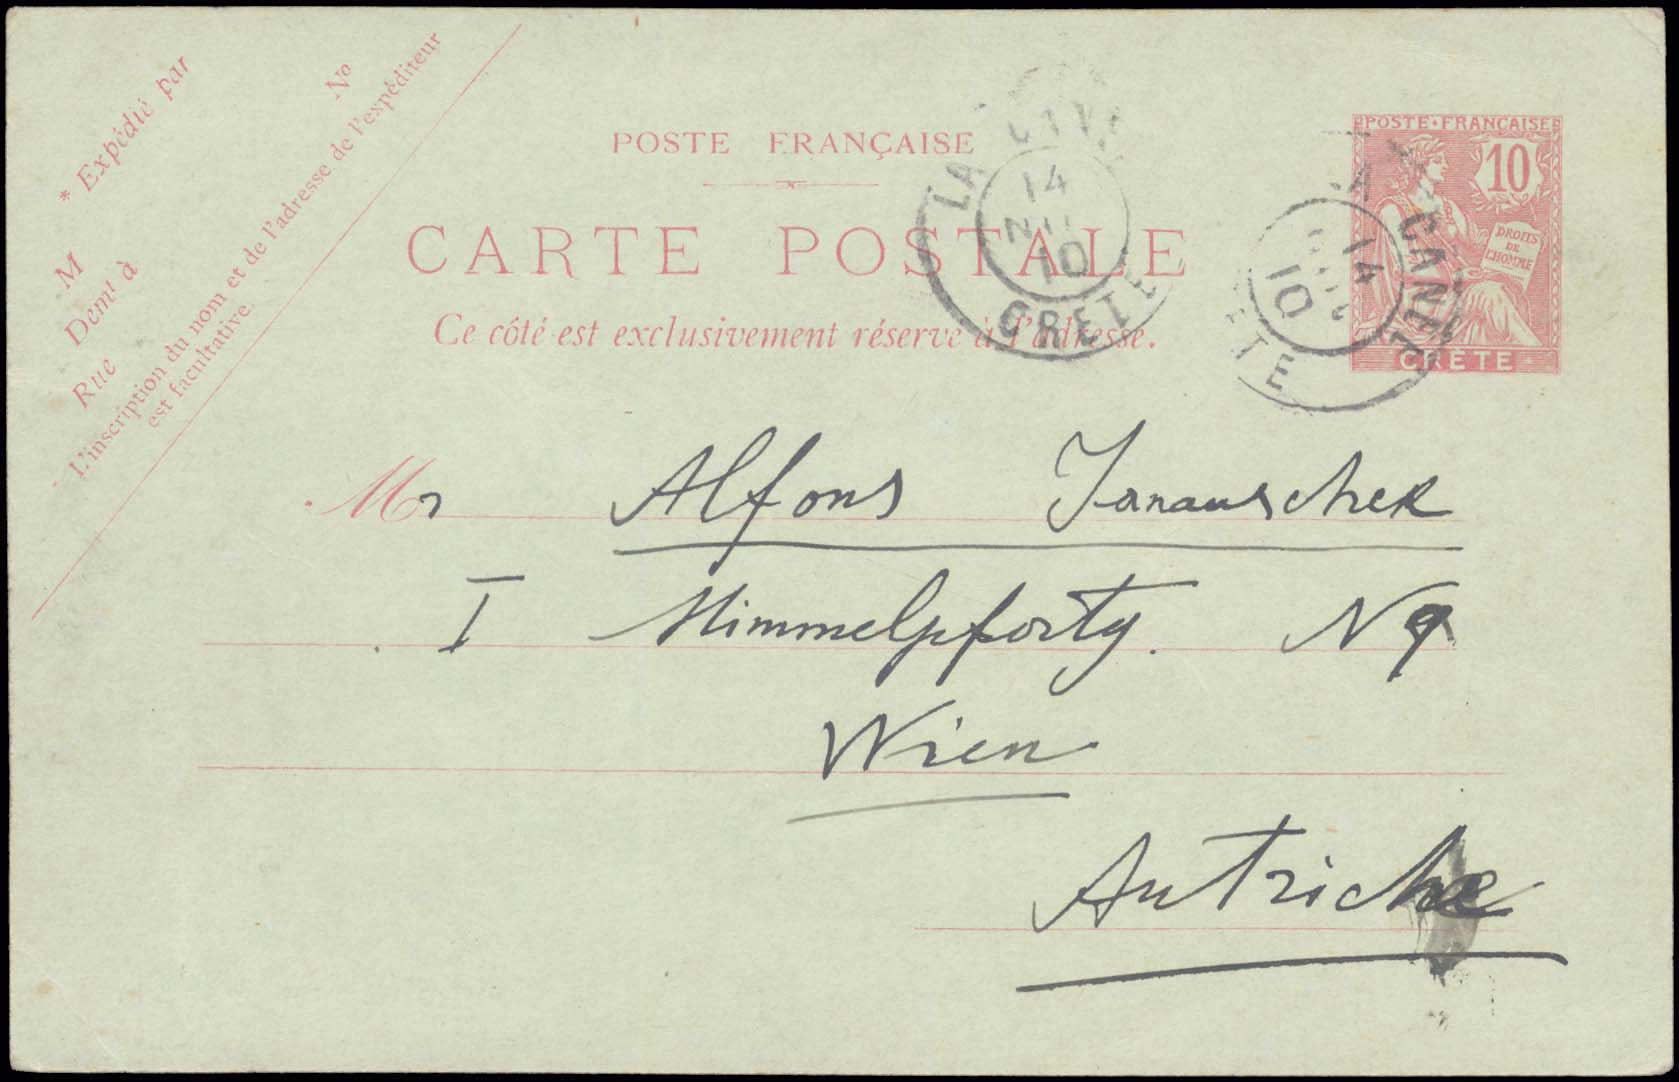 * Expédié par
M
Demt à
Rue
No
L'inscription du nom et de l'adresse de l'expéditeur
est facultative.
POSTE FRANÇAISE
CARTE POSTALE
Ce côté est exclusivement réservé à l'adresse.
LA CANÉE
14
10
CRETE
POSTE FRANÇAISE
10
DROITS
DE
L'HOMME
CRÈTE
LA CANÉE
14
10
CRETE
Mr Alfons Janauschek
I Himmelpfortg. N 9
Wien
Autriche